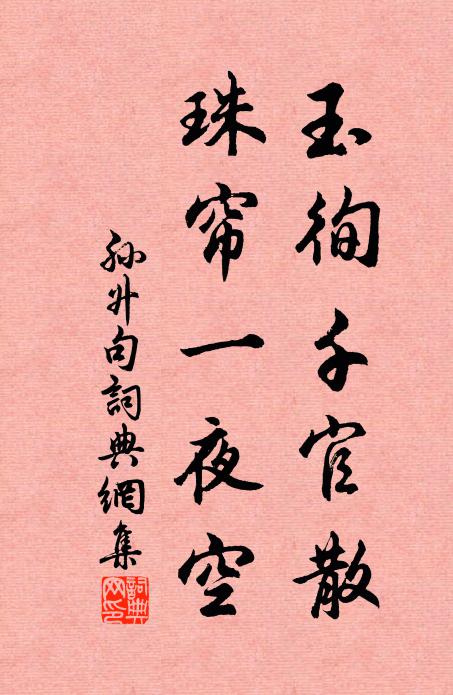 玉徇千官散
珠帘一夜空
孙升句詞典網集
詞典网印